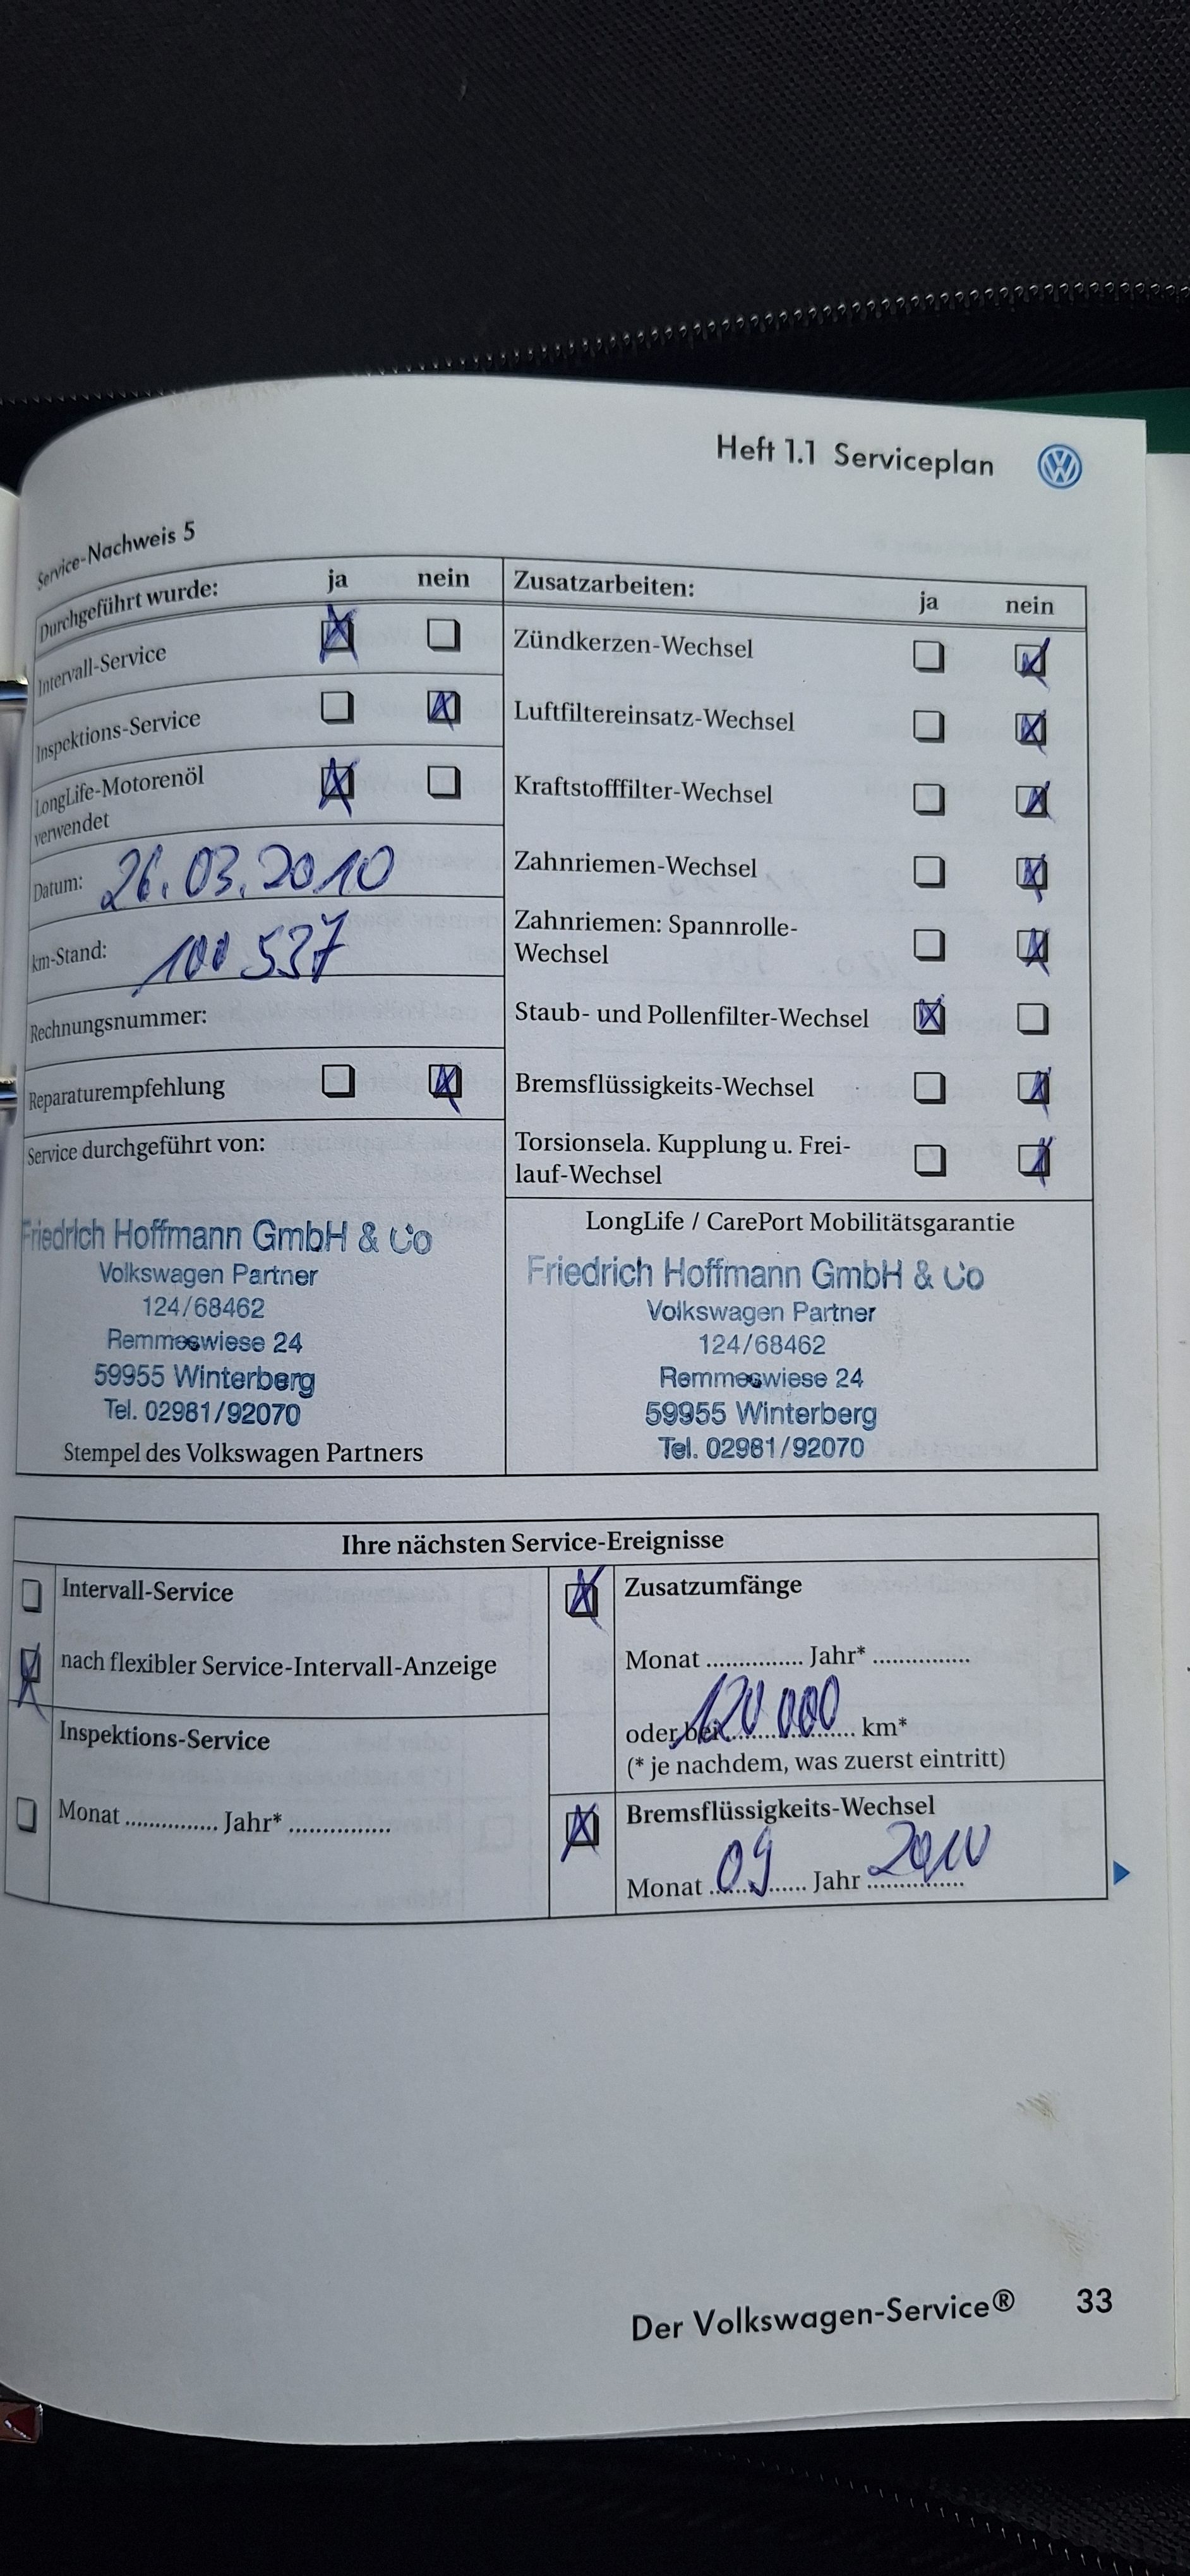 Heft 1.1 Serviceplan
Service-Nachweis 5
Durchgeführt wurde: ja nein
Intervall-Service
Inspektions-Service
LongLife-Motorenöl
verwendet
Datum: 26.03.2010
km-Stand: 100 537
Rechnungsnummer:
Reparaturempfehlung
Service durchgeführt von:
Friedrich Hoffmann GmbH & Co
Volkswagen Partner
124/68462
Remmeswiese 24
59955 Winterberg
Tel. 02981/92070
Stempel des Volkswagen Partners
Zusatzarbeiten: ja nein
Zündkerzen-Wechsel
Luftfiltereinsatz-Wechsel
Kraftstofffilter-Wechsel
Zahnriemen-Wechsel
Zahnriemen: Spannrolle-
Wechsel
Staub- und Pollenfilter-Wechsel
Bremsflüssigkeits-Wechsel
Torsionsela. Kupplung u. Frei-
lauf-Wechsel
LongLife / CarePort Mobilitätsgarantie
Friedrich Hoffmann GmbH & Co
Volkswagen Partner
124/68462
Remmeswiese 24
59955 Winterberg
Tel. 02981/92070
Ihre nächsten Service-Ereignisse
Intervall-Service
nach flexibler Service-Intervall-Anzeige
Inspektions-Service
Monat ............... Jahr* ................
Zusatzumfänge
Monat ............... Jahr* ...............
oder bei 120 000 km*
(* je nachdem, was zuerst eintritt)
Bremsflüssigkeits-Wechsel
Monat 09 Jahr 2010
Der Volkswagen-Service® 33